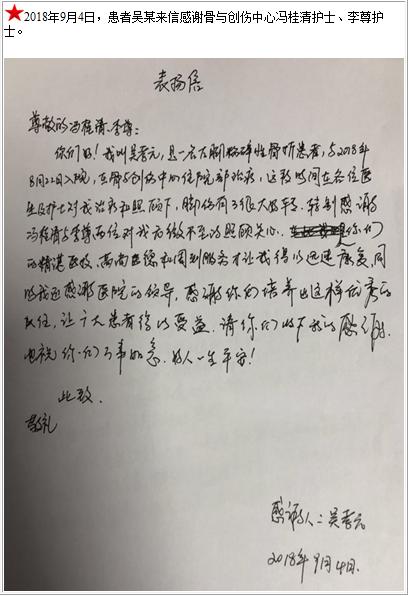 ★2018年9月4日，患者吴某来信感谢骨与创伤中心冯桂清护士、李尊护
士。
表扬信
尊敬的冯桂清、李尊：
你们好！我叫吴孝元，是一名左脚粉碎性骨折患者，于2018年
8月22日入院，在骨与创伤中心住院部治疗，这段时间在各位医
生及护士对我治疗和照顾下，脚伤有了很大的好转。特别感谢
冯桂清与李尊两位对我无微不至的照顾关心。是你们
的精湛医技，高尚医德和周到服务才让我得以迅速康复，同
时我还感谢医院的领导，感谢你们培养出这样优秀的
队伍，让广大患者得以受益。请你们收下我的感谢。
也祝你们万事如意，好人一生平安！
此致
敬礼
感谢人：吴孝元
2018年9月4日.